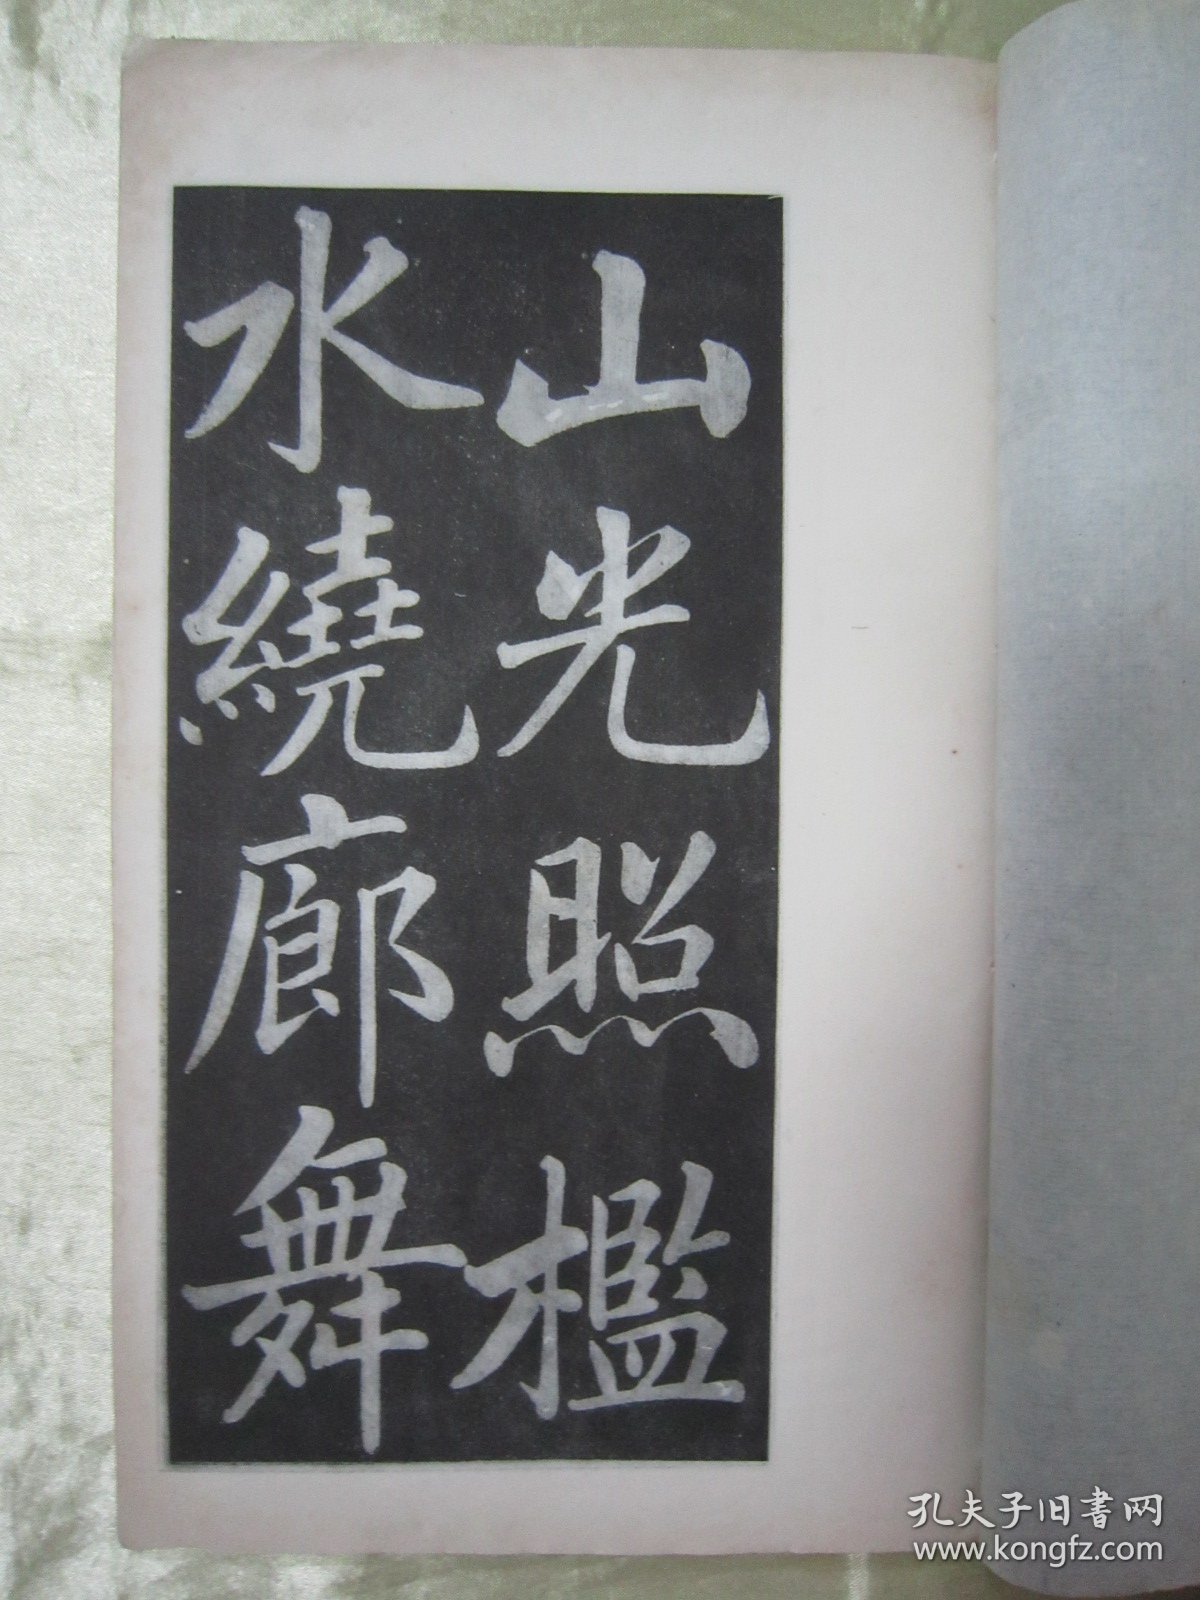 山光照檻
水繞廊舞
孔夫子旧書网
www.kongfz.com